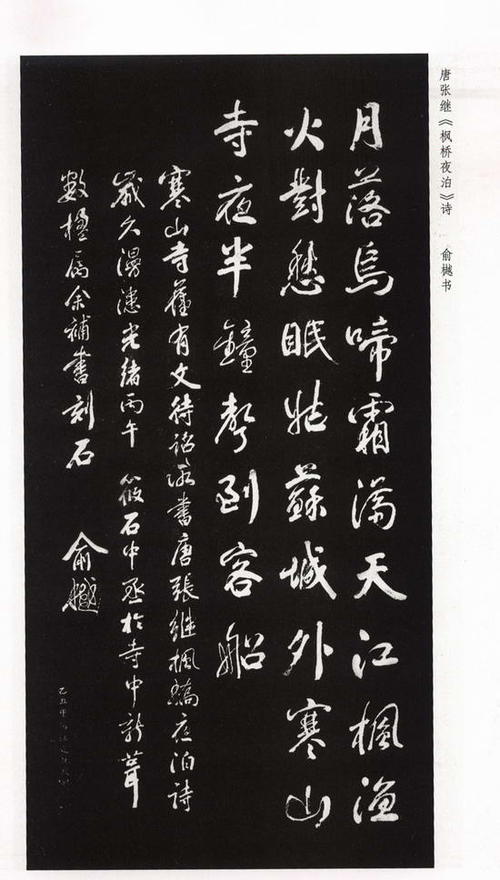 唐张继《枫桥夜泊》诗 俞樾书
月落烏啼霜满天江楓漁
火對愁眠姑蘇城外寒山
寺夜半鐘聲到客船
寒山寺舊有文待詔所書唐張继楓橋夜泊詩
歲久漫漶光緒丙午 筱石中丞於寺中新葺
數楹属余補書刻石 俞樾